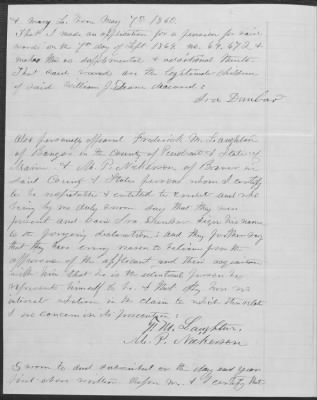 & Mary L. born May 7th 1860.
That I made an application for a pension for said
wards on the 7th day of Sept 1864. no. 69,672 &
makes this as supplemental & additional thereto.
That said wards are the legitimate children
of said William deceased:
Ira Dunbar
Also personally appeared Frederick M. Laughton
of Bangor in the County of Penobscot & State of
Maine & M. P. Nickerson, of Brewer in
said County & State persons whom I certify
to be reputable & entitled to credit and who
being by me duly sworn say that they were
present and saw Ira Dunbar sign his name
to the foregoing declaration; and they further say
that they have every reason to believe from the
appearance of the applicant and their acquaintance
with him that he is the identical person he
represents himself to be. & that they have no
interest in the claim to which this relates
in its prosecution:
F. M. Laughton,
M. P. Nickerson
Sworn to and subscribed on the day and year
first above written before me. & I certify that